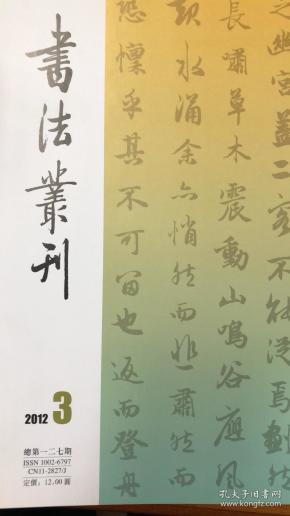 書法叢刊
2012 3
總第一二七期
ISSN 1002-6797
CN11-2827/J
定價：12.00圓
之幽宮蓋二客不能從焉劃然
長嘯草木震動山鳴谷應風
水涌余亦悄然而悲肅然而
恐懍乎其不可留也返而登舟
孔夫子旧书网